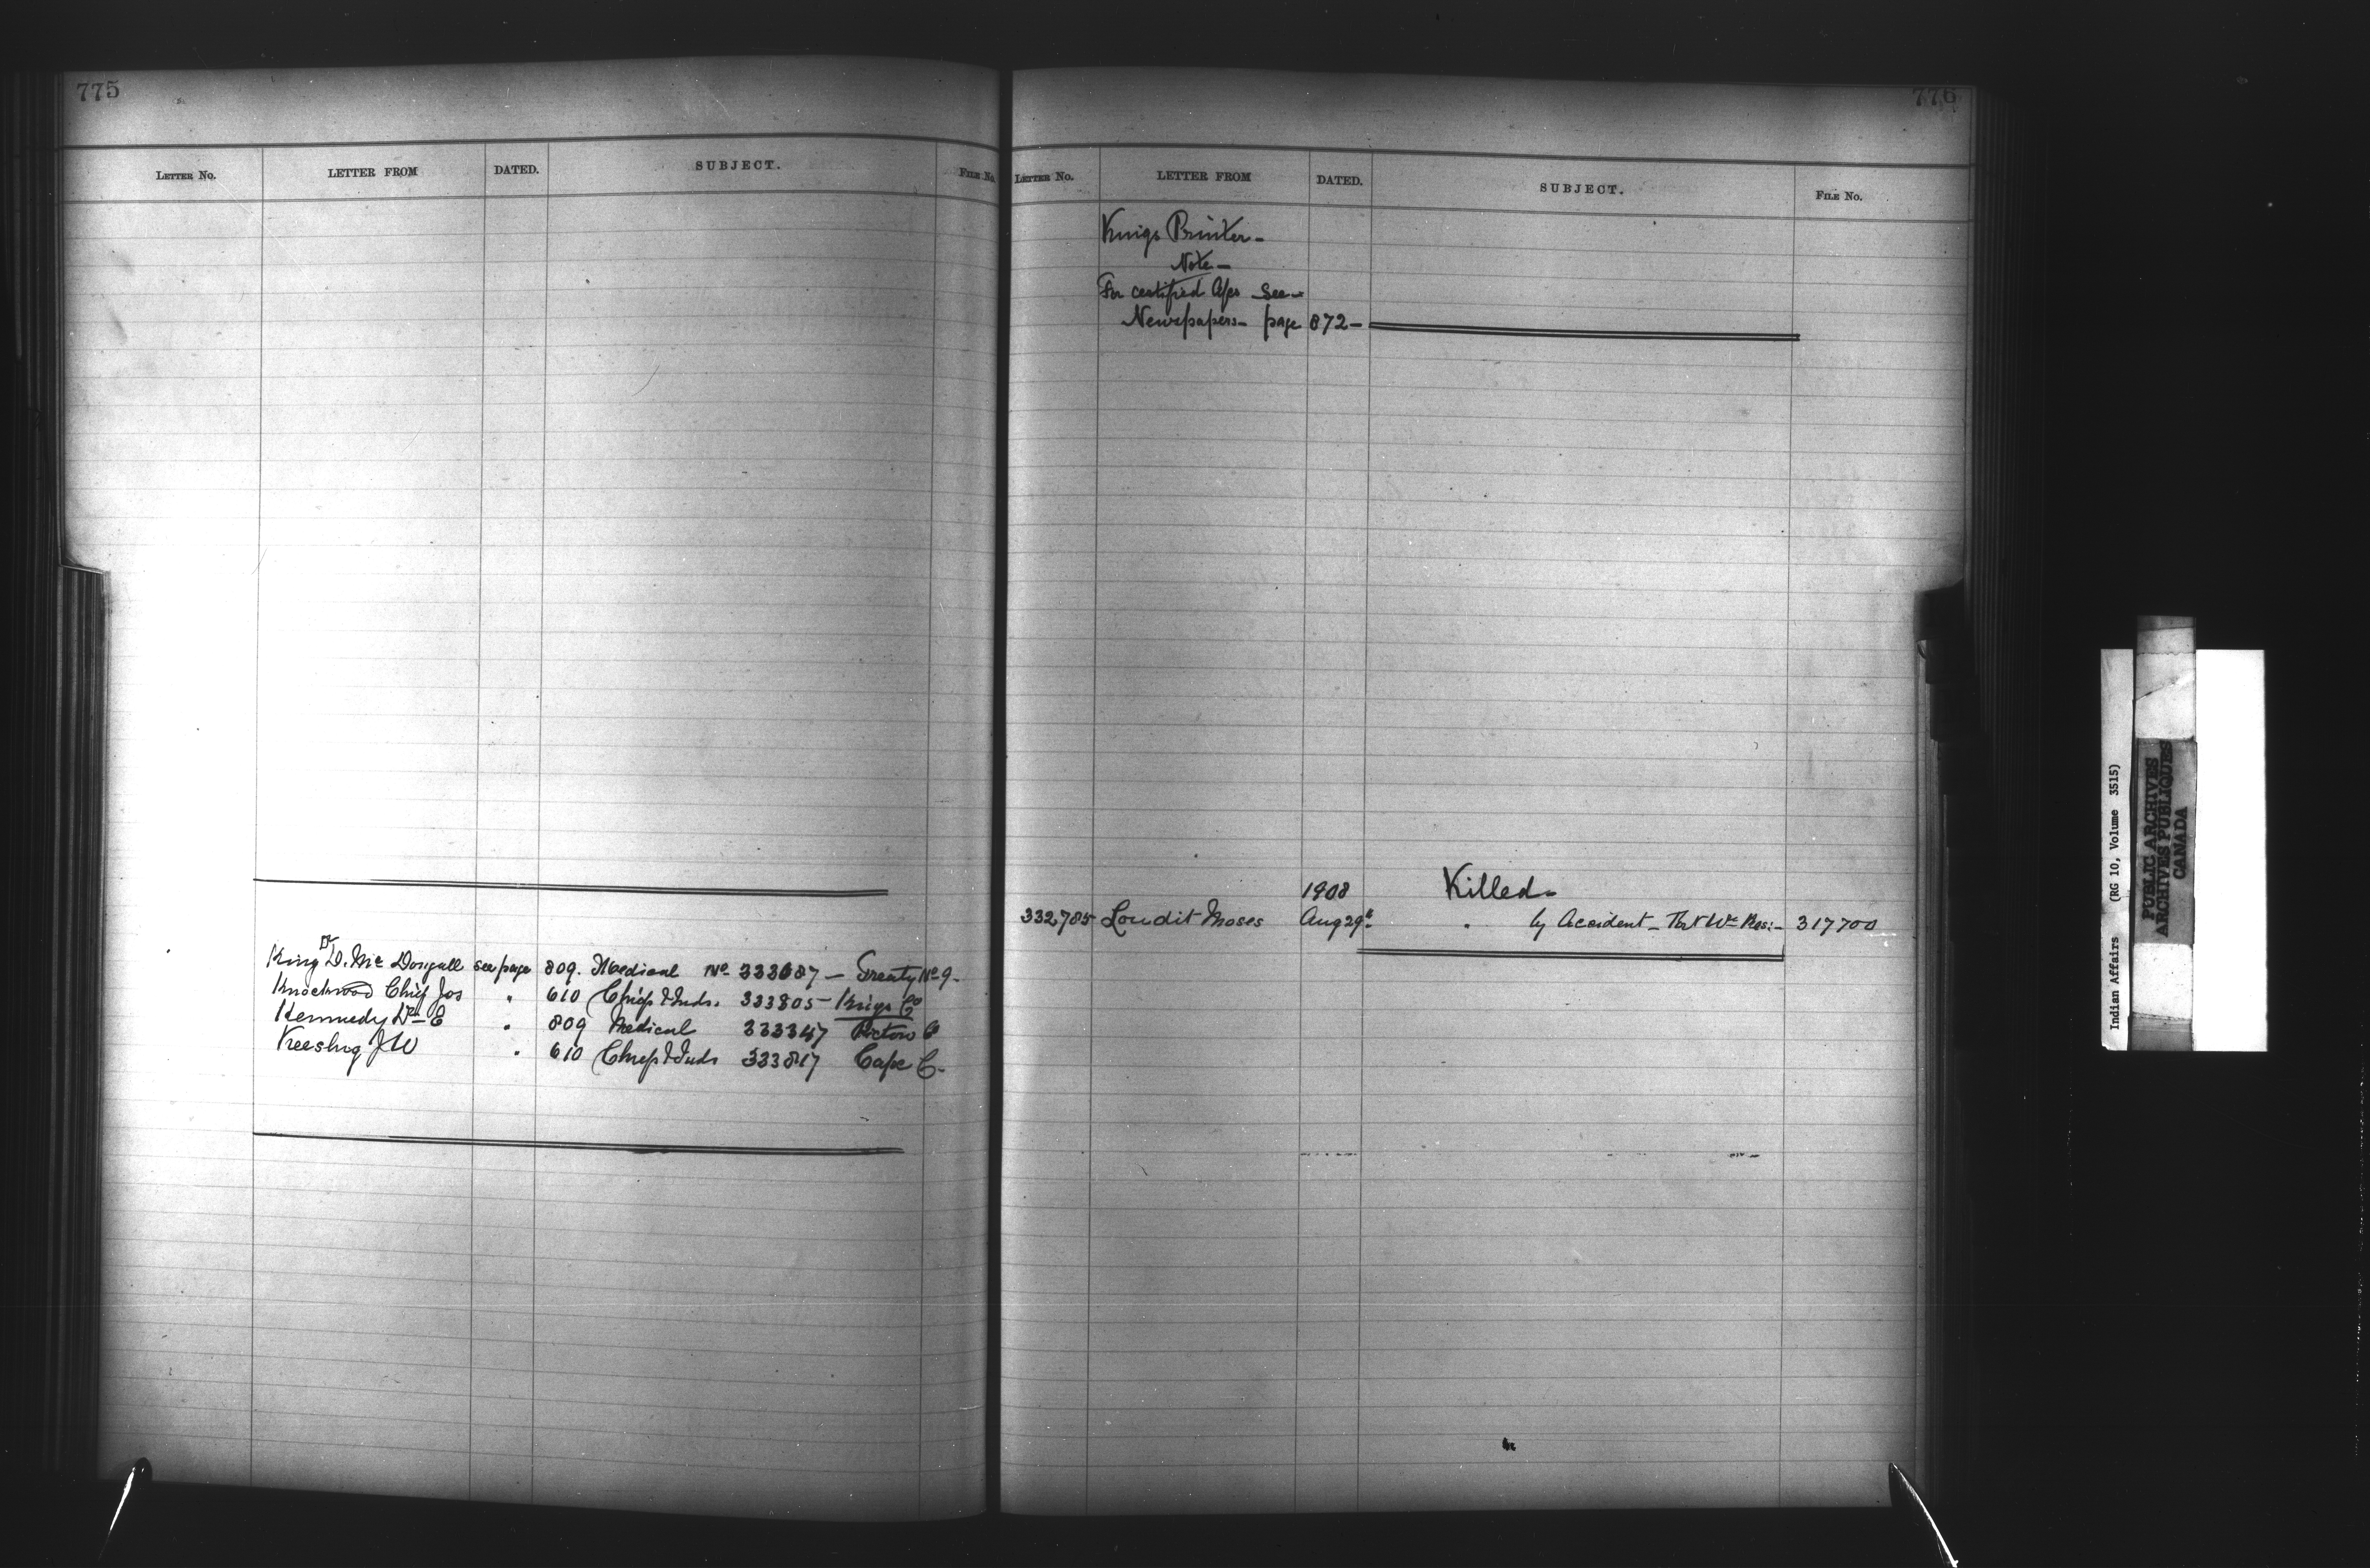 775
LETTER No. LETTER FROM DATED. SUBJECT. FILE No.
King Dr D. Mc Dougall see page 809. Medical No. 333687 — Treaty No 9.
Knockwood Chief Jos " 610 Chiefs & Inds. 333805 — Kings Co
Kennedy Dr E " 809 Medical 333347 Pictou Co
Keeshig J W " 610 Chiefs & Inds 333817 Cape C.
776
LETTER No. LETTER FROM DATED. SUBJECT. FILE No.
Kings Printer —
Note —
For certified a/cs see —
Newspapers — page 872 —
1908 Killed —
332785 Loudit Moses Aug 29th " by Accident — 317700
Indian Affairs (RG 10, Volume 3515)
PUBLIC ARCHIVES
ARCHIVES PUBLIQUES
CANADA